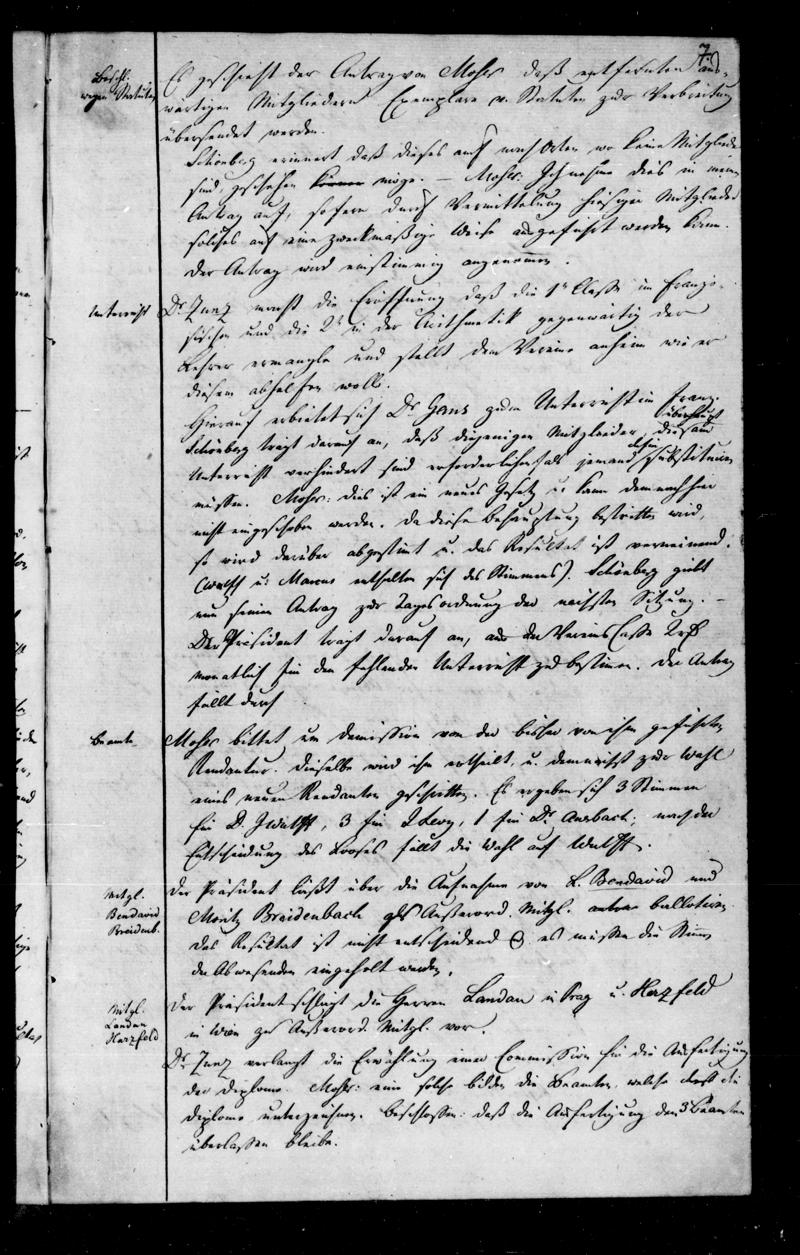 7.
Beschl.
wegen Statuten
Es geschieht der Antrag von Moser daß entfernten aus-
wärtigen Mitgliedern Exemplare v. Statuten zur Verbreitung
übersendet werden.
Schönberg erinnert daß dieses auch nach Orten wo keine Mitglieder
sind, geschehen könne möge. — Moser: Ich nehme dies in meinen
Antrag auf, sofern durch Vermittelung hiesiger Mitglieder
solches auf eine zweckmäßige Weise ausgeführt werden kann.
Der Antrag wird einstimmig angenommen.
Unterricht
Dr Zunz macht die Eröffnung daß die 1te Classe im Franzö-
sischen und die 2te in der Arithmetik gegenwärtig der
Lehrer ermangle und stellt dem Vereine anheim wie er
diesem abhelfen wolle.
Hierauf erbietet sich Dr Gans zum Unterricht im Franz.
Schönberg trägt darauf an, daß diejenigen Mitglieder, die am überhaupt
Unterricht verhindert sind erforderlichenfalls jemand substituiren
müssen. Moser: dies ist ein neues Gesetz u. kann demnach hier
nicht eingeschoben werden. Da diese Behauptung bestritten wird,
so wird darüber abgestimmt u. das Resultat ist verneinend.
(Wulff u. Marcus enthalten sich des Stimmens). Schönberg giebt
nun seinen Antrag zur Tagesordnung der nächsten Sitzung. —
Der Präsident trägt darauf an, aus der Vereins Casse
monatlich für den fehlenden Unterricht zu bestimmen. Der Antrag
fällt durch
Beamte
Moser bittet um Demission von der bisher von ihm geführten
Rendantur. Dieselbe wird ihm ertheilt u. demnächst zur Wahl
eines neuen Rendanten geschritten. Es ergeben sich 3 Stimmen
für D. J Wulff, 3 für J Levy, 1 für Dr Auerbach; nach der
Entscheidung des Looses fällt die Wahl auf Wulff.
Mitgl.
Bendavid
Breidenb.
Der Präsident läßt über die Aufnahme von L. Bendavid und
Moritz Breidenbach als Außerord. Mitgl. ballotiren.
Das Resultat ist nicht entscheidend es müssen die Stimmen
der Abwesenden eingeholt werden.
Mitgl.
Landau
Herzfeld
Der Präsident schlägt die Herren Landau in Prag u. Herzfeld
in Wien zu Außerord. Mitgl. vor.
Dr Zunz verlangt die Erwählung einer Commission für die Ausfertigung
der Diplome. Moser: eine solche bilden die Beamten welche die
Diplome unterzeichnen. Beschlossen: daß die Ausfertigung den 3 Beamten
überlassen bleibe.